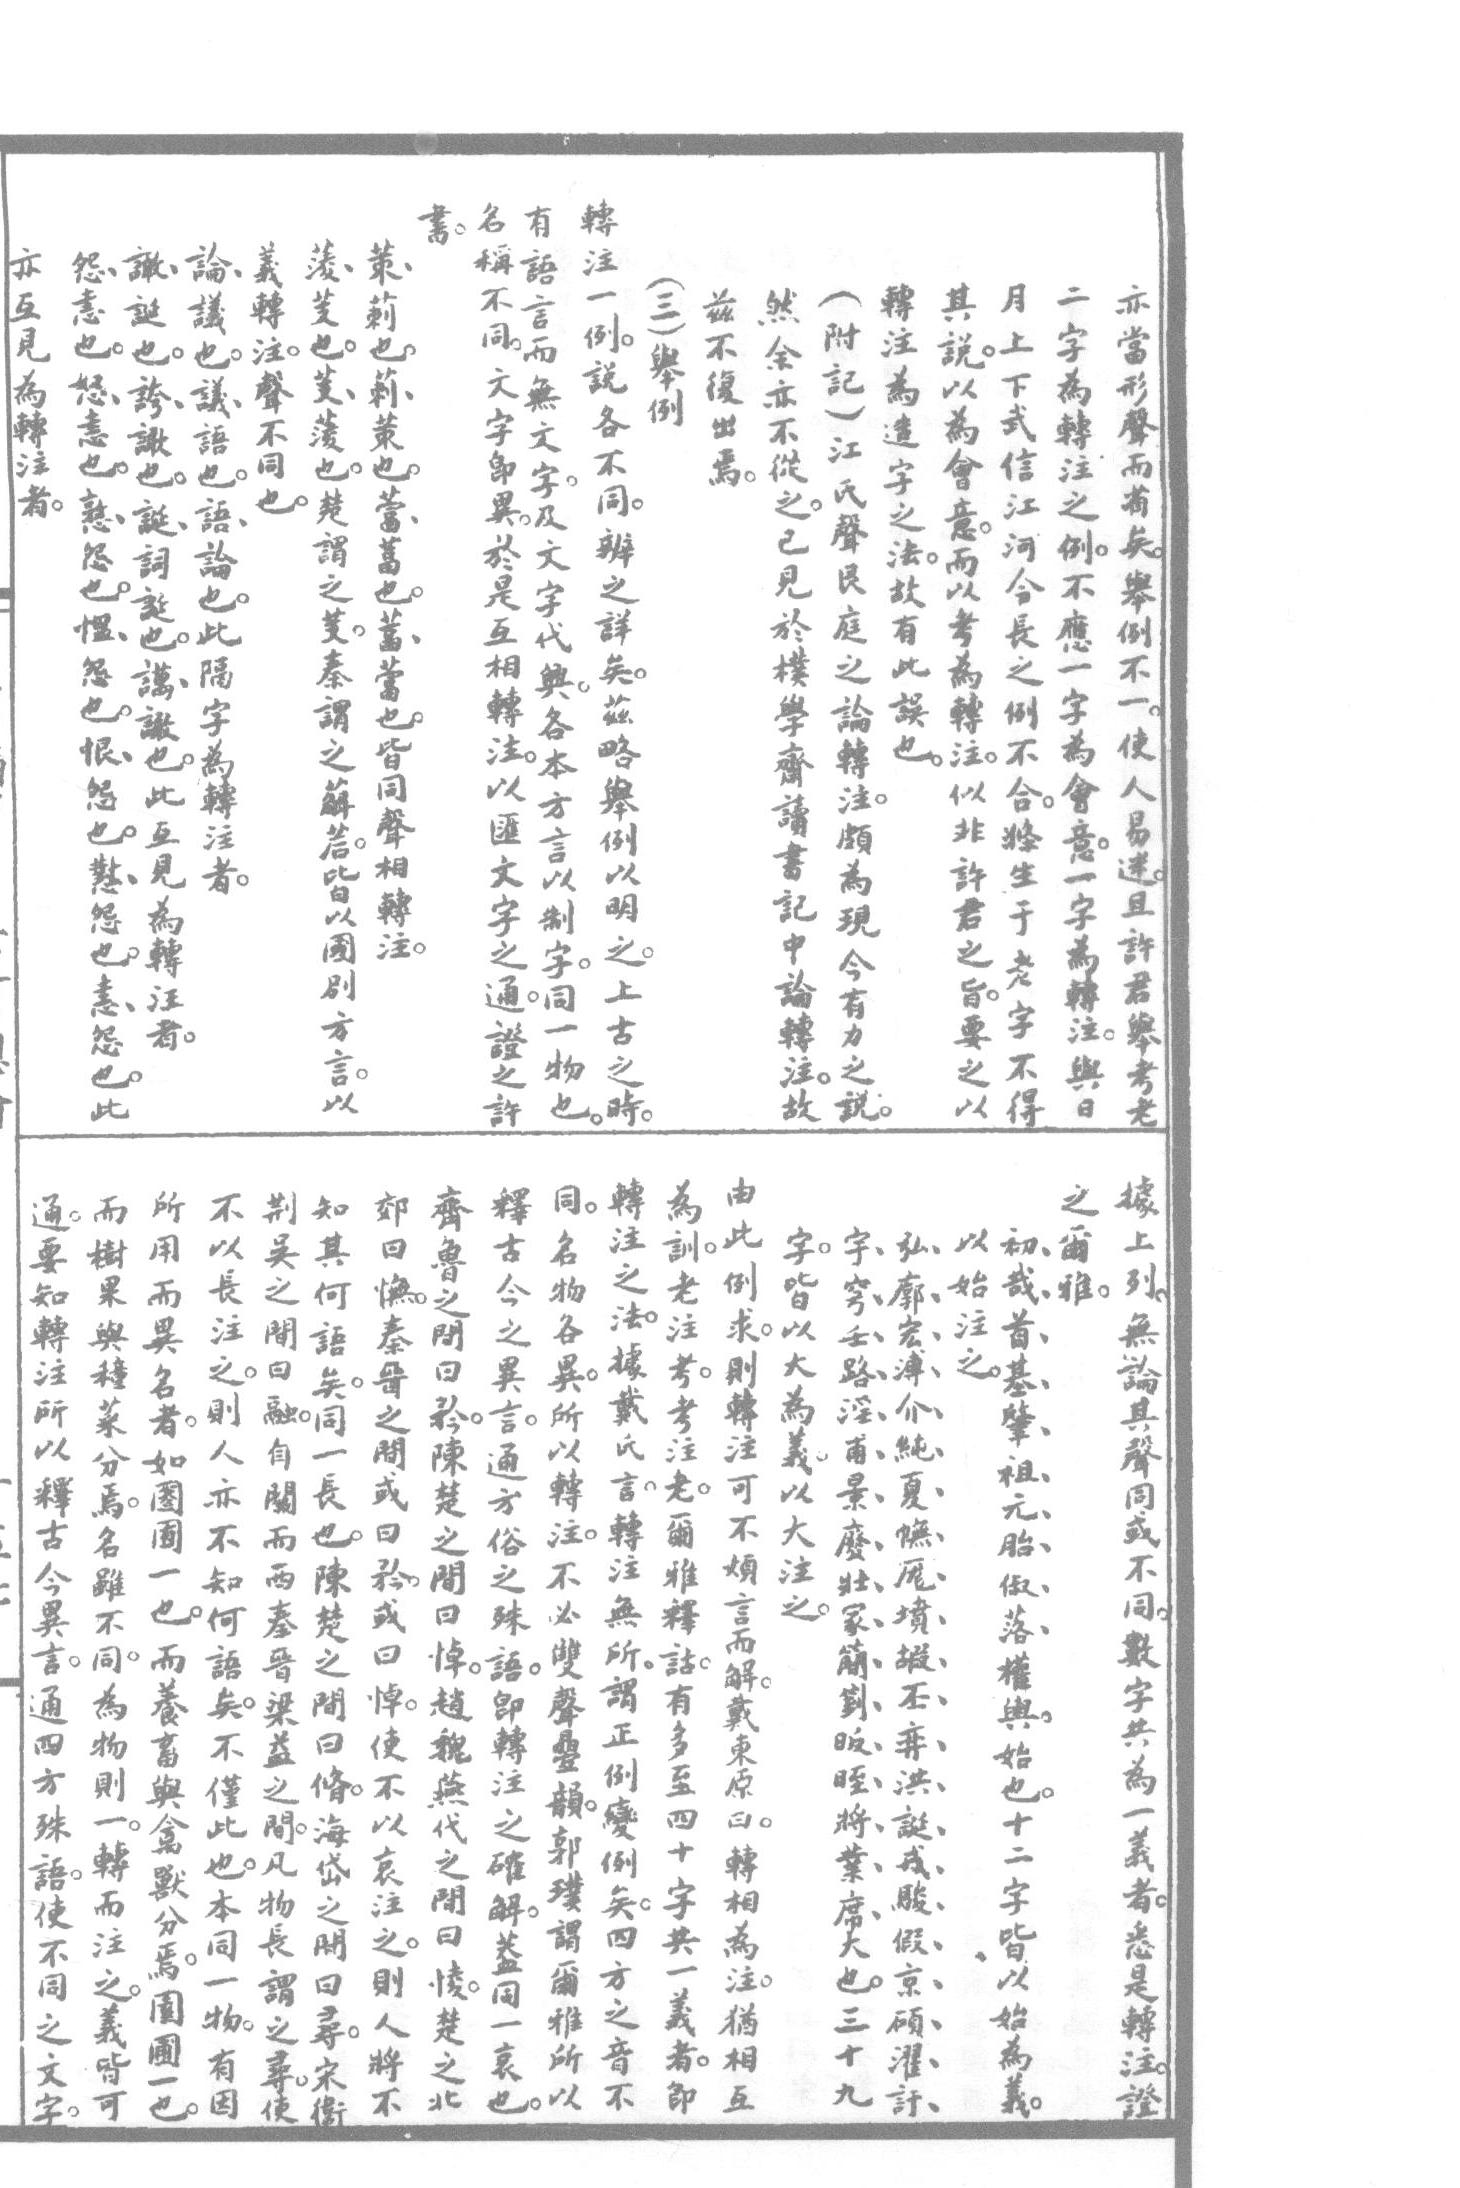 亦當形聲而省矣。舉例不一。使人易迷。且許君舉考老
二字為轉注之例。不應一字為會意。一字為轉注。與日
月上下武信江河令長之例不合。㷩生于老字不得
其說。以為會意。而以考為轉注。似非許君之旨。要之以
轉注為造字之法。故有此誤也。
(附記)江氏聲艮庭之論轉注。頗為現今有力之說。
然余亦不從之。已見於樸學齋讀書記中論轉注。故
茲不復出焉。
(三)舉例
轉注一例。說各不同。辨之詳矣。茲略舉例以明之。上古之時。
有語言而無文字。及文字代興。各本方言以制字。同一物也。
名稱不同。文字卽異。於是互相轉注。以匯文字之通。證之許
書。
茦、莿也。莿、茦也。葍、䔰也。䔰、葍也。皆同聲相轉注。
蓤、芰也。芰、蓤也。楚謂之芰。秦謂之薢茩。皆以國别方言。以
義轉注。聲不同也。
論、議也。議、語也。語、論也。此隔字為轉注者。
譀、誕也。誇、譀也。誕、詞誕也。譪、譀也。此互見為轉注者。
怨、恚也。怒、恚也。憝、怨也。慍、怨也。恨、怨也。懟、怨也。恚、怨也。此
亦互見為轉注者。
據上列。無論其聲同或不同。數字共為一義者。悉是轉注。證
之爾雅。
初、哉、首、基、肇、祖、元、胎、俶、落、權輿。始也。十二字皆以始為義。
以始注之。
弘、廓、宏、溥、介、純、夏、幠、厖、墳、嘏、丕、弈、洪、誕、戎、駿、假、京、碩、濯、訏、
宇、穹、壬、路、淫、甫、景、廢、壯、冢、簡、箌、昄、晊、將、業、席、大也。三十九
字。皆以大為義。以大注之。
由此例求。則轉注可不煩言而解。戴東原曰。轉相為注。猶相互
為訓。老注考。考注老。爾雅釋詁。有多至四十字共一義者。卽
轉注之法。據戴氏言。轉注無所謂正例變例矣。四方之音不
同。名物各異。所以轉注。不必雙聲疊韻。郭璞謂爾雅所以
釋古今之異言。通方俗之殊語。卽轉注之確解。蓋同一哀也。
齊魯之間曰矜。陳楚之間曰悼。趙魏燕代之間曰悷。楚之北
郊曰憮。秦晉之間或曰矜。或曰悼。使不以哀注之。則人將不
知其何語矣。同一長也。陳楚之間曰脩。海岱之間曰尋。宋衞
荆吳之間曰融。自關而西秦晉梁益之間。凡物長謂之尋。使
不以長注之。則人亦不知何語矣。不僅此也。本同一物。有因
所用而異名者。如圂囿一也。而養畜與禽獸分焉。園圃一也。
而樹果與種菜分焉。名雖不同。為物則一。轉而注之。義皆可
通。要知轉注所以釋古今異言。通四方殊語。使不同之文字。